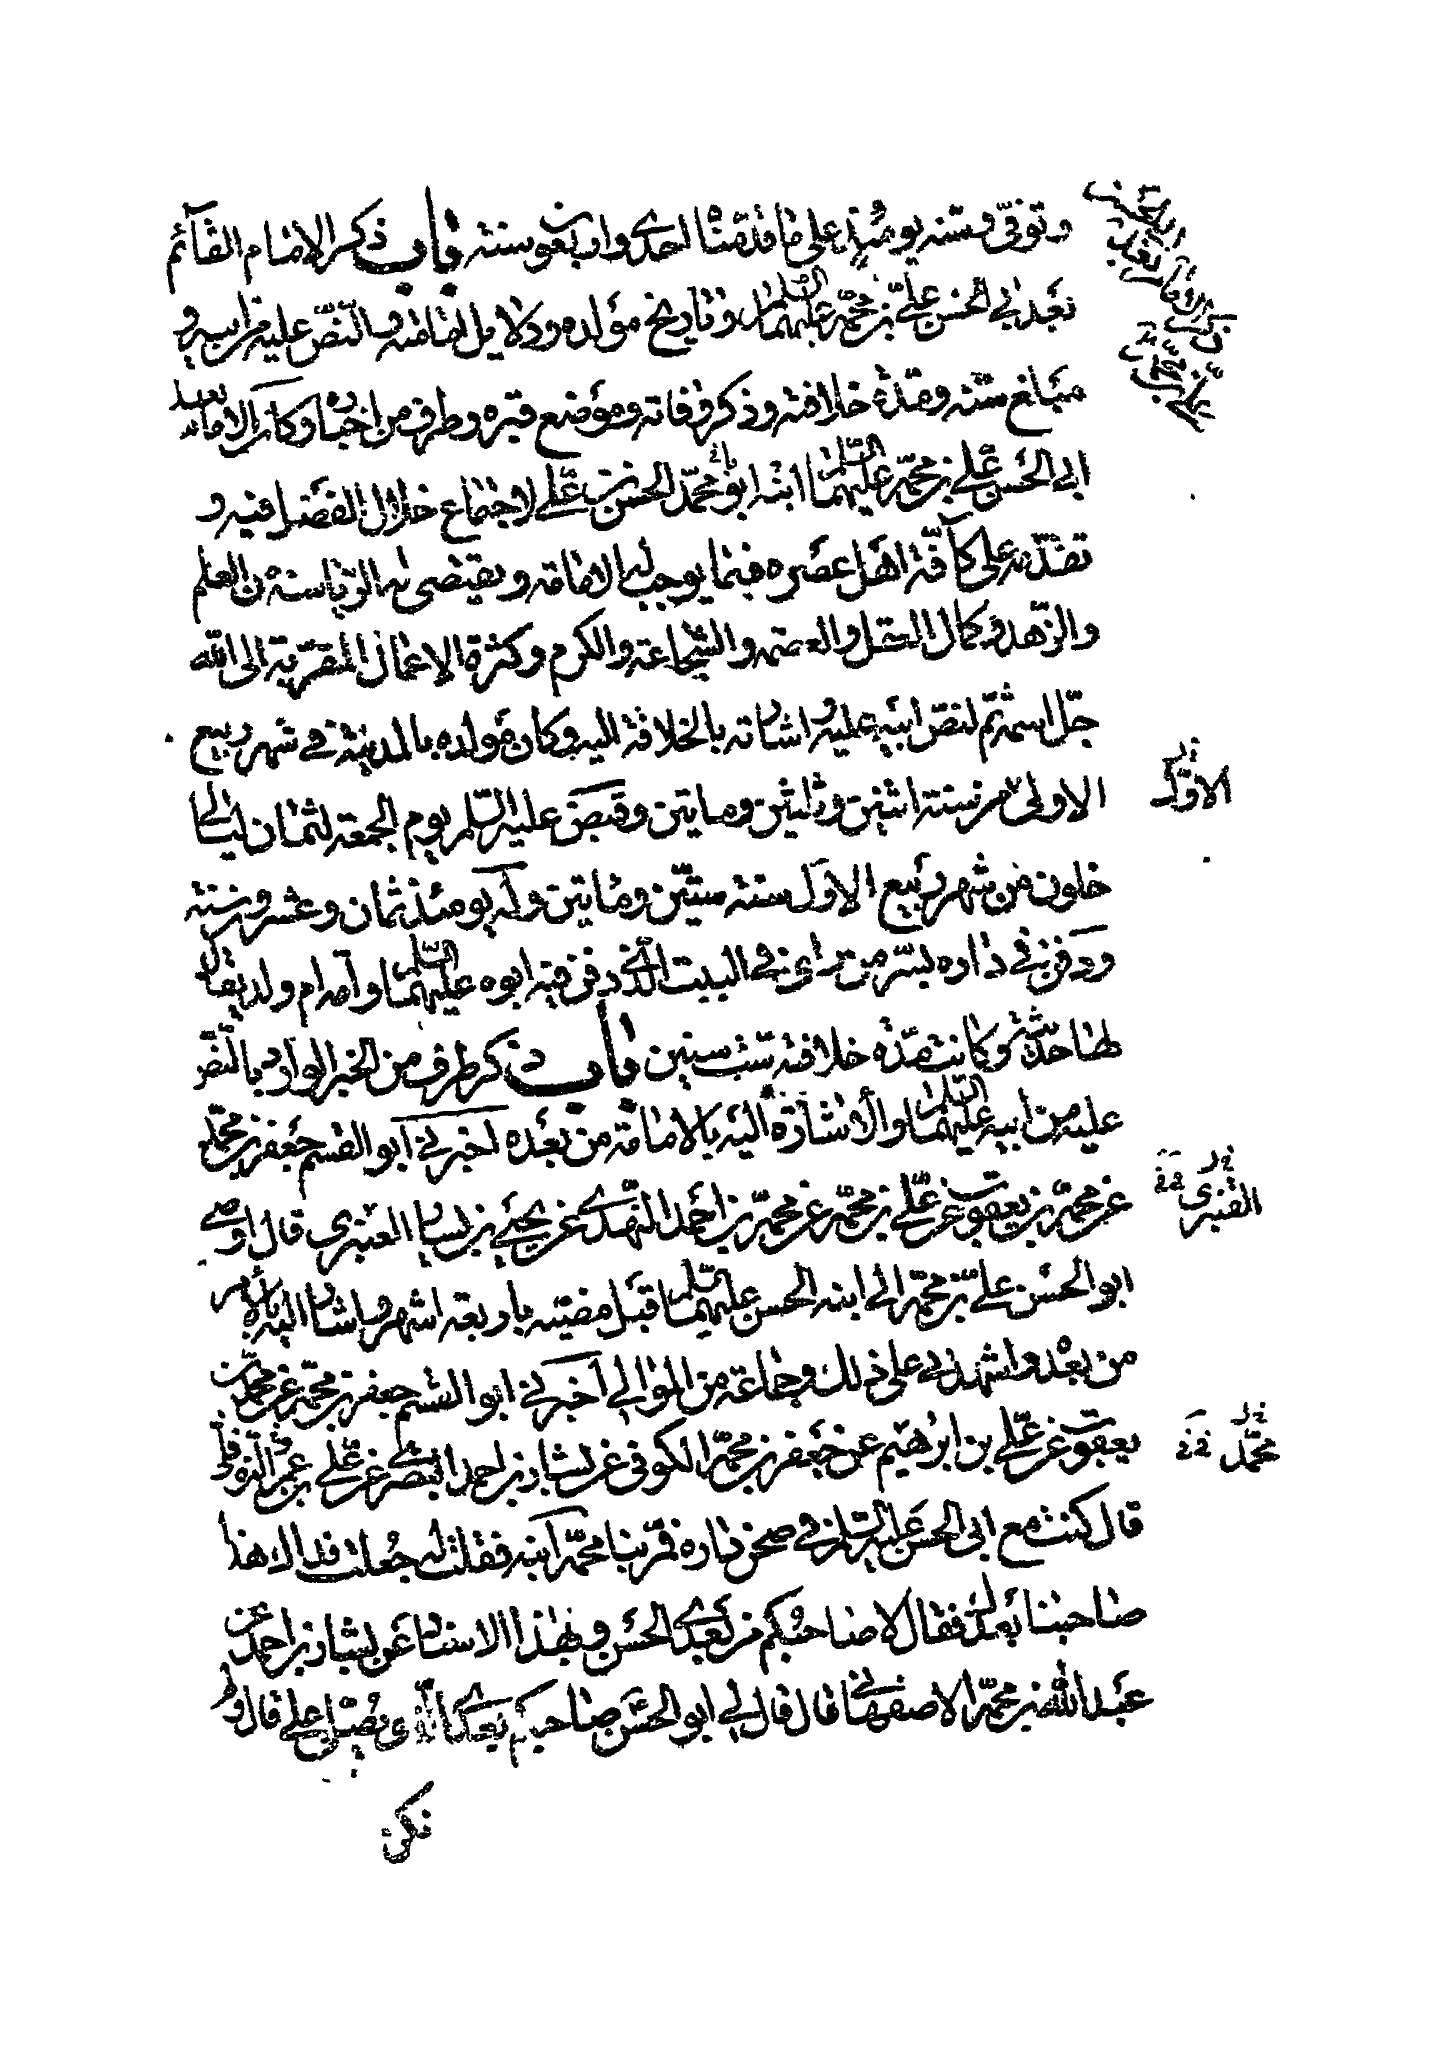 وتوفي وسنه يومئذ على ما قدمناه احدى واربعون سنة باب ذكر الامام القائم
بعد ابي الحسن علي بن محمد عليهما السلام وتاريخ مولده ودلايل امامته والنص عليه من ابيه و
مبلغ سنه ومدة خلافته وذكر وفاته وموضع قبره وطرف من اخباره وكان الامام بعد
ابي الحسن علي بن محمد عليهما السلام ابنه ابو محمد الحسن بن علي لاجتماع خلال الفضل فيه و
تقدمه على كافة اهل عصره فيما يوجب له الامامة ويقتضى له الرياسة من العلم
والزهد وكمال العقل والعصمة والشجاعة والكرم وكثرة الاعمال المقربة الى الله
جل اسمه ثم لنص ابيه عليه واشارته بالخلافة اليه وكان مولده بالمدينة في شهر ربيع
الاولى من سنة اثنين وثلثين ومايتين وقبض عليه السلم يوم الجمعة لثمان ليالي
الاول
خلون من شهر ربيع الاول سنة ستين ومايتين وله يومئذ ثمان وعشرون سنة
ودفن في داره بسر من راى في البيت الذي دفن فيه ابوه عليهما السلام وامه ام ولد يقال
لها حديث وكانت مدة خلافته ست سنين باب ذكر طرف من الخبر الوارد بالنص
عليه من ابيه عليهما السلام والاشارة اليه بالامامة من بعده اخبرني ابو القسم جعفر بن محمد
عن محمد بن يعقوب عن علي بن محمد عن محمد بن احمد النهدي عن يحيى بن يسار العنبري قال اوصى
القنبرى
ابو الحسن علي بن محمد الى ابنه الحسن عليهما السلم قبل مضيه باربعة اشهر واشار اليه بالامر
من بعده واشهدني على ذلك وجماعة من الموالي اخبرني ابو القسم جعفر بن محمد عن محمد بن
يعقوب عن علي بن ابرهيم عن جعفر بن محمد الكوفي عن بشار بن احمد البصري عن علي بن عمر النوفلي
محمد
قال كنت مع ابي الحسن عليه السلم في صحن داره فمر بنا محمد ابنه فقلت له جعلت فداك هذا
صاحبنا بعدك فقال لا صاحبكم من بعدي الحسن وبهذا الاسناد عن بشار بن احمد عن
عبد الله بن محمد الاصفهاني قال قال لي ابو الحسن صاحبكم بعدي الذي يصلي علي قال ولم
نكن